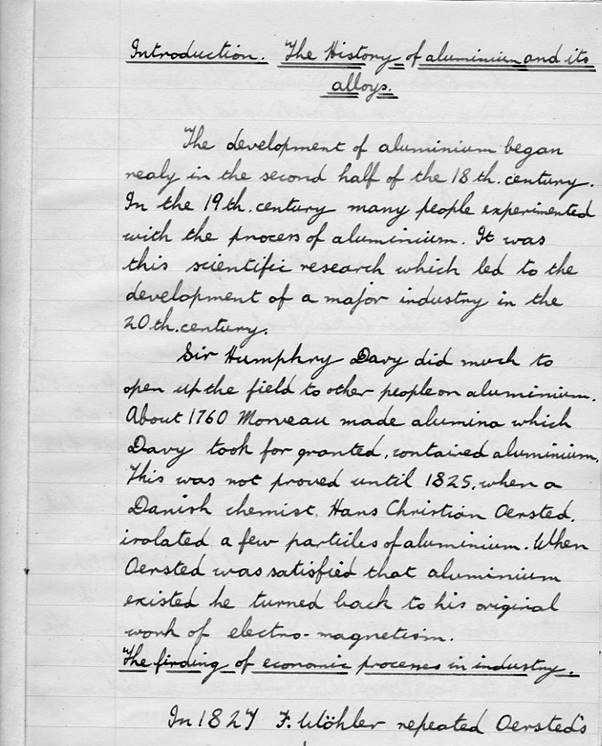 Introduction. The History of aluminium and its
alloys.
The development of aluminium began
realy in the second half of the 18th. century.
In the 19th. century many people experimented
with the process of aluminium. It was
this scientific research which led to the
development of a major industry in the
20th. century.
Sir Humphry Davy did much to
open up the field to other people on aluminium.
About 1760 Morveau made alumina which
Davy took for granted, contained aluminium.
This was not proved until 1825, when a
Danish chemist, Hans Christian Oersted,
isolated a few particles of aluminium. When
Oersted was satisfied that aluminium
existed he turned back to his original
work of electro-magnetism.
The finding of economic processes in industry.
In 1827 F. Wöhler repeated Oersted's